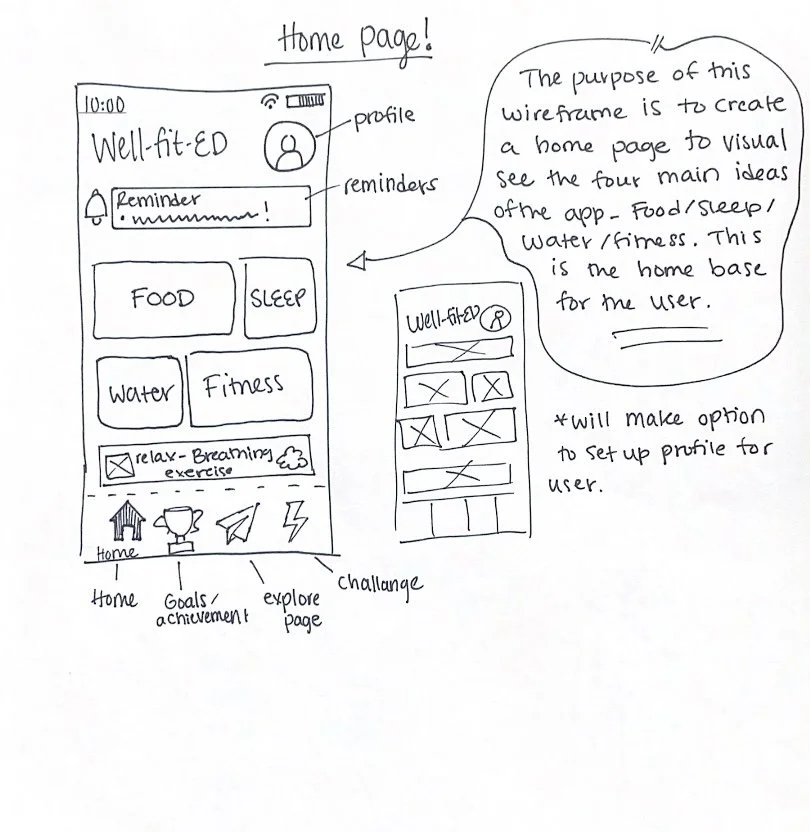 Home page!
10:00
Well-fit-ED
profile
Reminder
!
reminders
FOOD
SLEEP
Water
Fitness
relax- Breathing
exercise
Home
Home
Goals/
achievement
explore
page
challange
The purpose of this
wireframe is to create
a home page to visual
see the four main ideas
of the app - Food/Sleep/
water/fitness. This
is the home base
for the user.
Well-fit-ED
*will make option
to set up profile for
user.